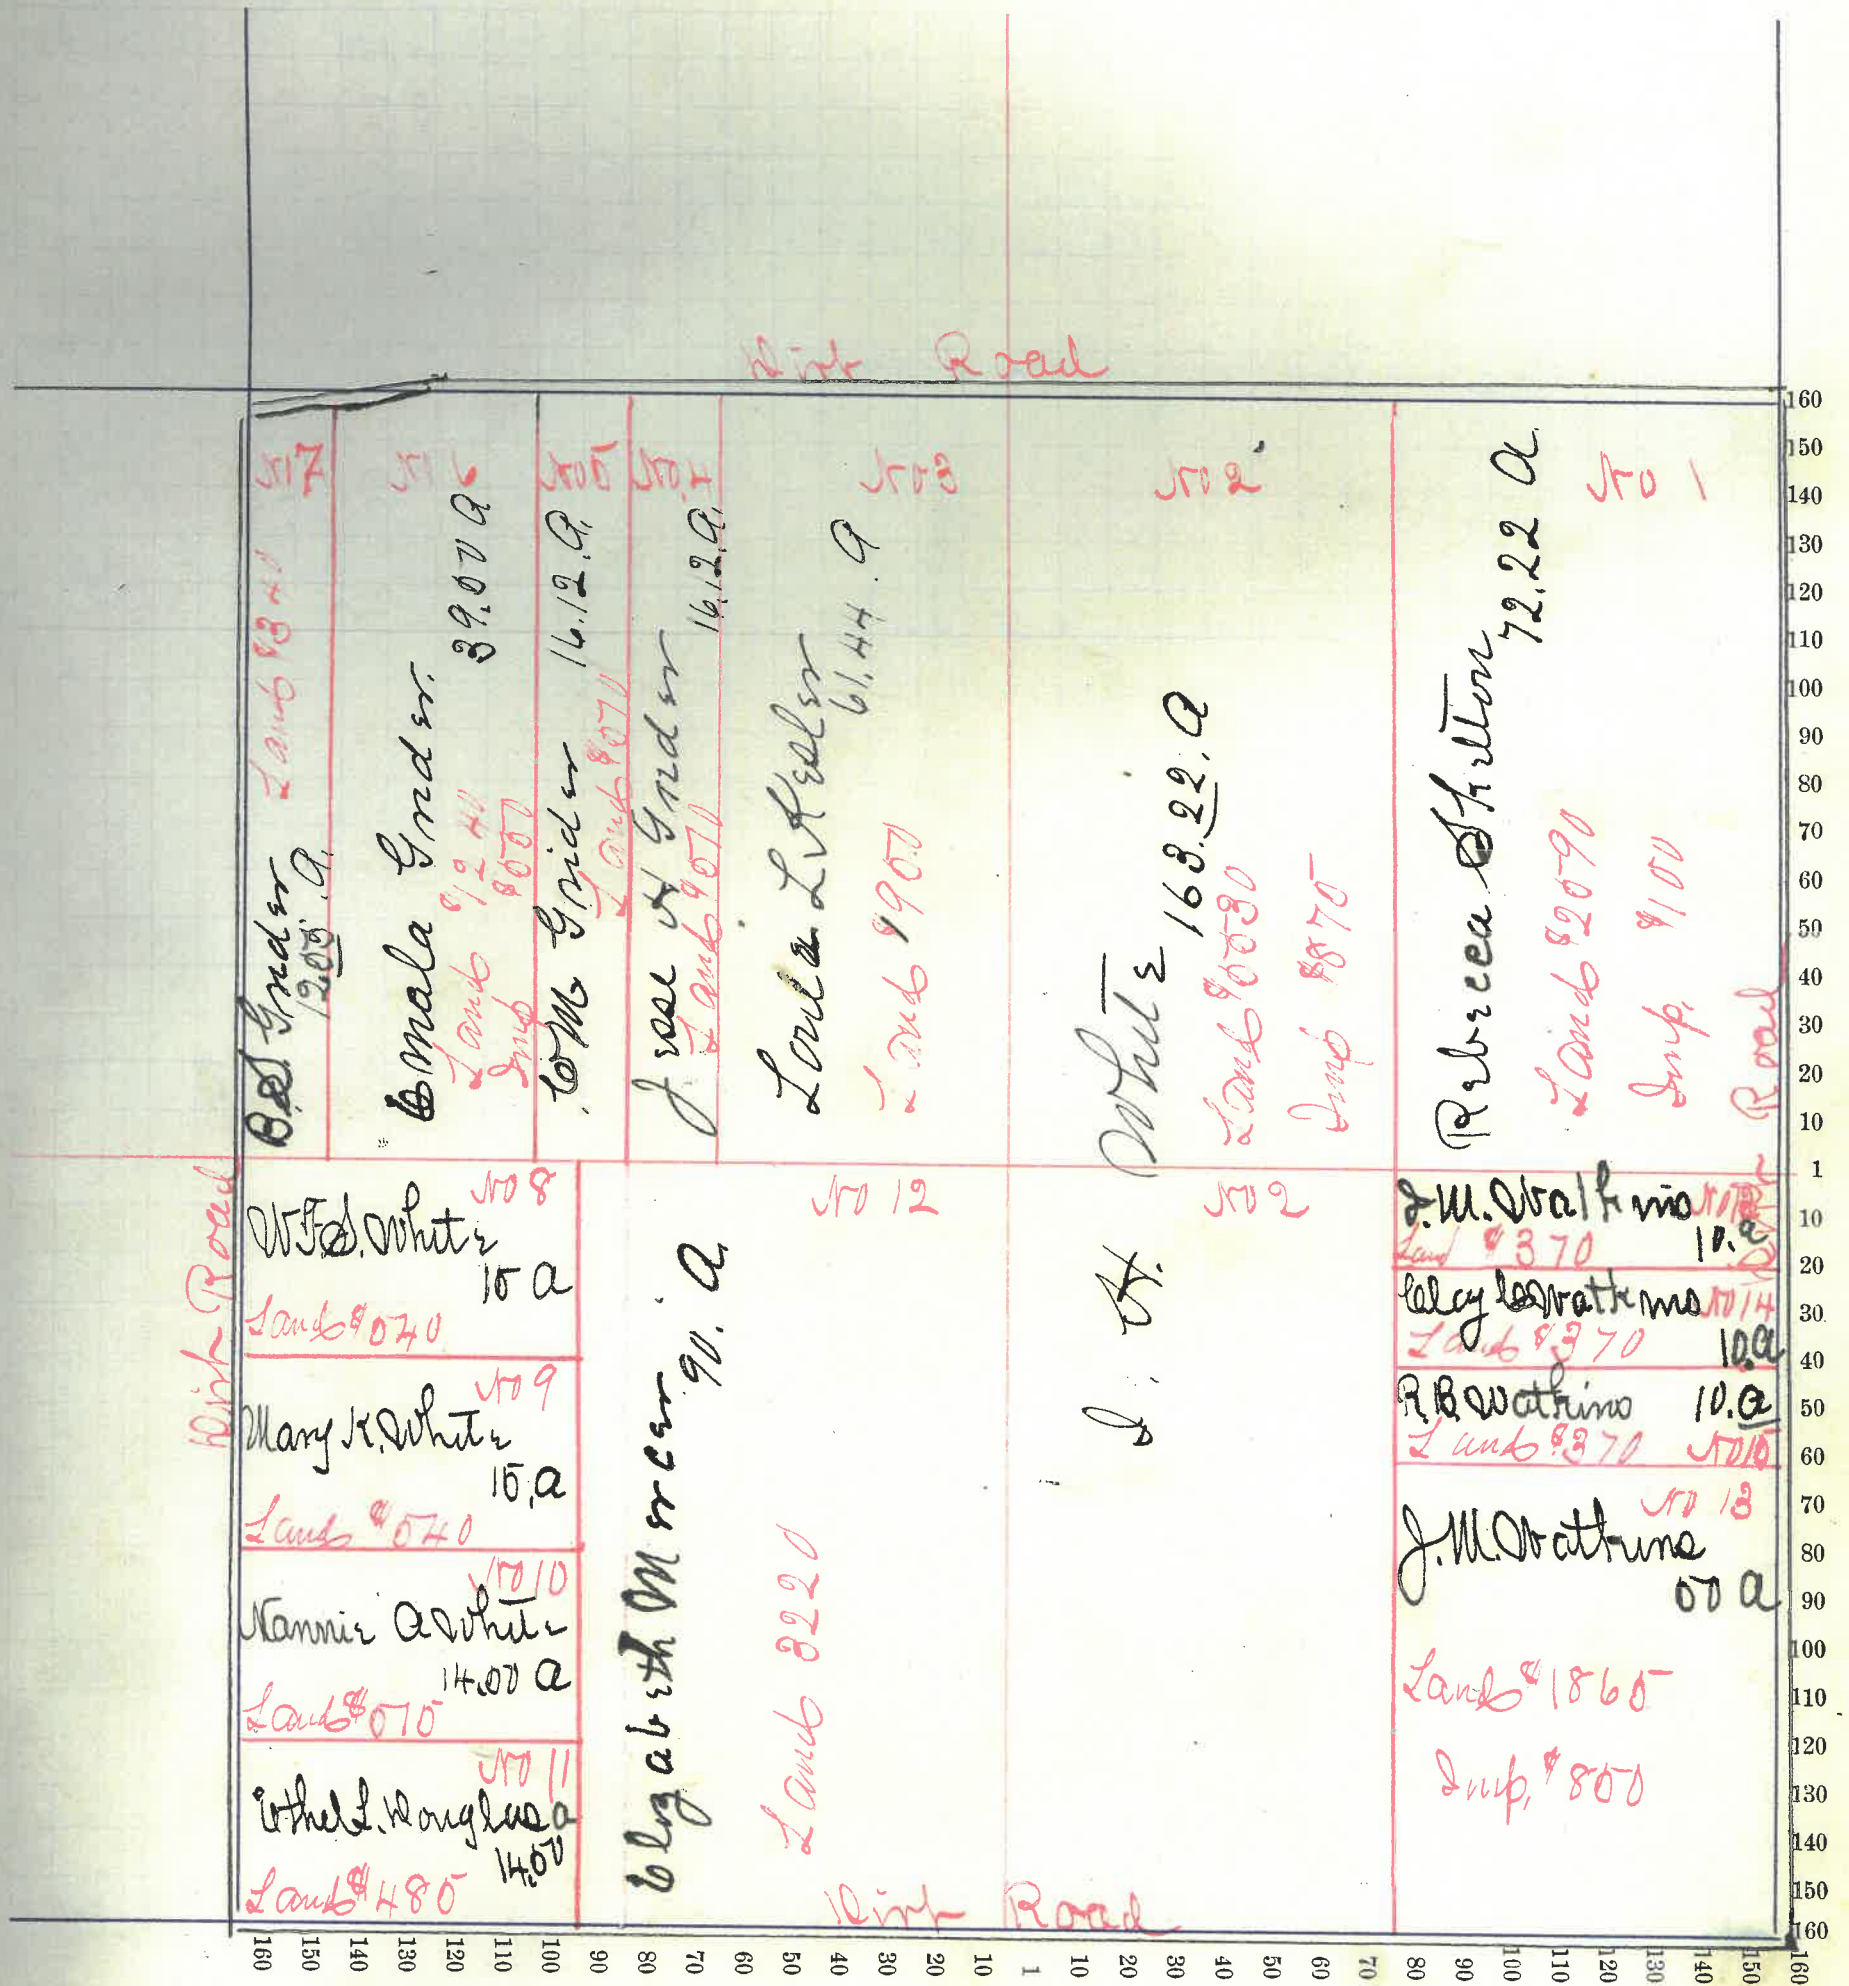 Dirt Road
No 7
Land $340
B.S. Grider
12.05 a.
No 6
Emala Grider.
39.50 a
Land $1240
Imp $500
No 5
C M Grider 16.12. a.
Land $570
No. 4
Jesse H Grider
16.12. a.
Land $570
No 3
Loula L Kesler
61.44. a
Land $1900
No 2
J. H. White 163.22. a
Land $5530
Imp $870
No 1
Rebecca Shelton
72.22 a.
Land $2590
Imp. $100
Dirt Road
Dirt Road
No 8
W.F.S. White
15 a
Land $540
No 9
Mary K. White
15. a
Land $540
No 10
Nannie A White
14.50 a
Land $515
No 11
Ethel L. Douglas a
14.50
Land $485
No 12
Elizabeth Mercer
90. a.
Land 3220
No 2
J. M. Watkins
10. a
Land $370
Clay C Watkins No 14
Land $370 10. a
R.B. Watkins 10. a
Land $370 No 15
No 13
J. M. Watkins
50 a
Land $1865
Imp. $800
Dirt Road
160
150
140
130
120
110
100
90
80
70
60
50
40
30
20
10
1
10
20
30
40
50
60
70
80
90
100
110
120
130
140
150
160
160 150 140 130 120 110 100 90 80 70 60 50 40 30 20 10 1 10 20 30 40 50 60 70 80 90 100 110 120 130 140 150 160